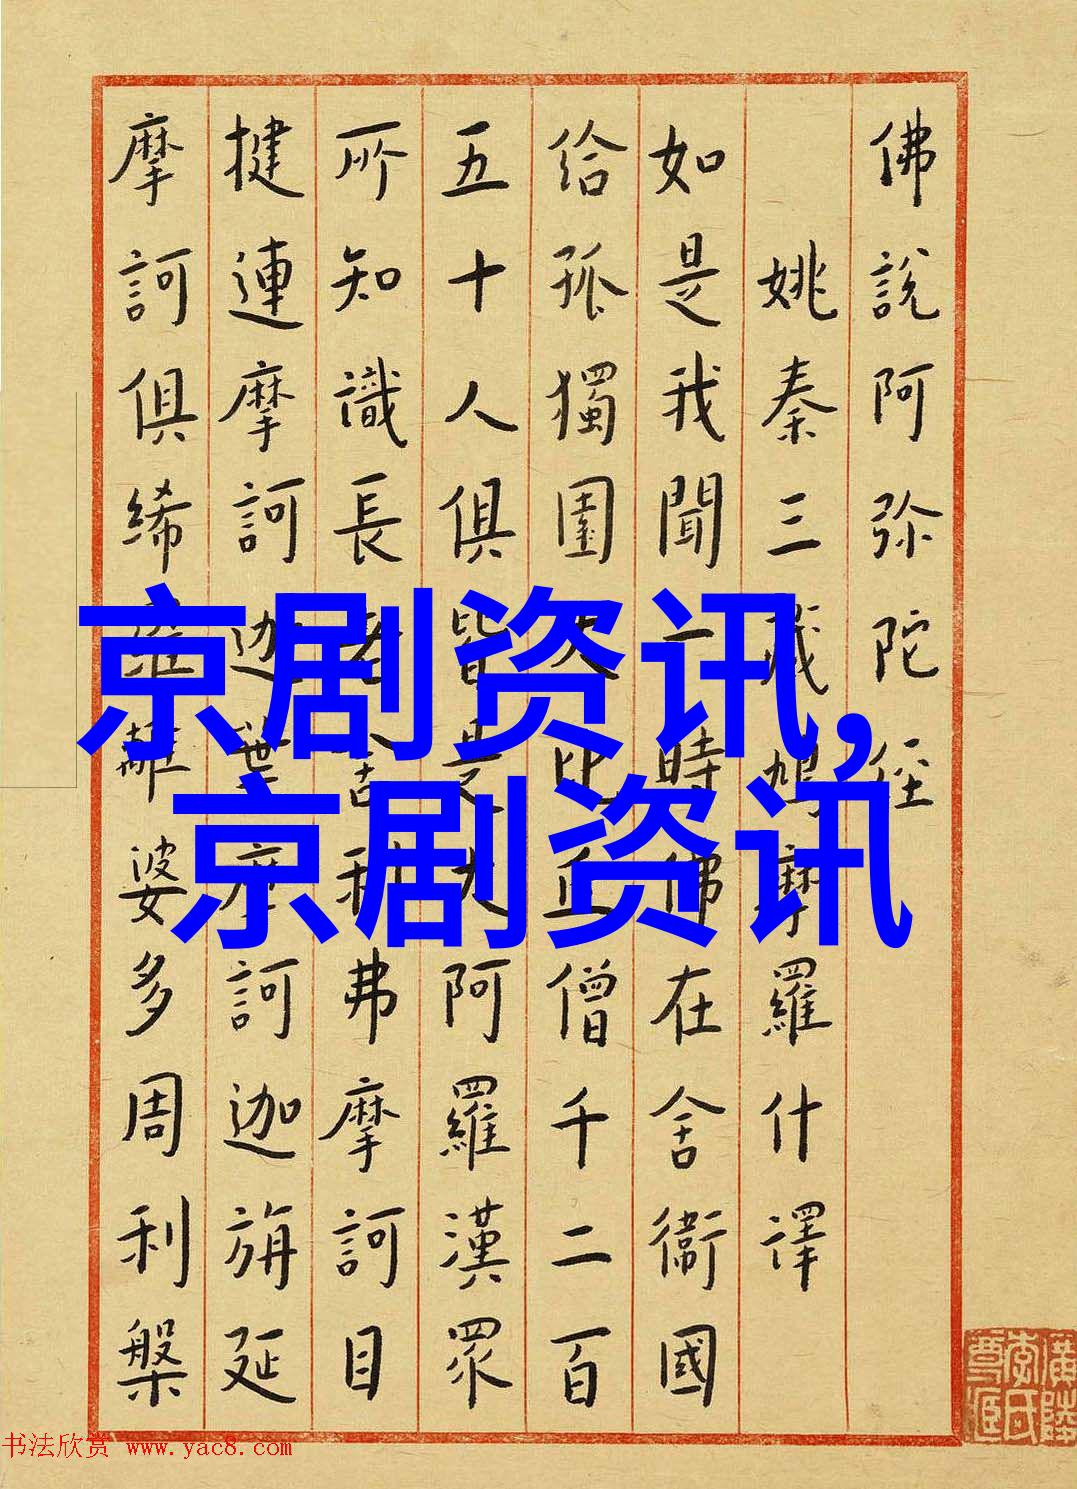 佛說阿弥陀経
姚秦三藏鳩摩羅什譯
如是我聞一時佛在舍衞國
給孤獨園大比丘僧千二百
五十人俱皆是大阿羅漢眾
所知識長老舍利弗摩訶目
揵連摩訶迦葉摩訶迦旃延
摩訶俱絺羅離婆多周利槃
京剧资讯,
京剧资讯
书法欣赏 www.yac8.com